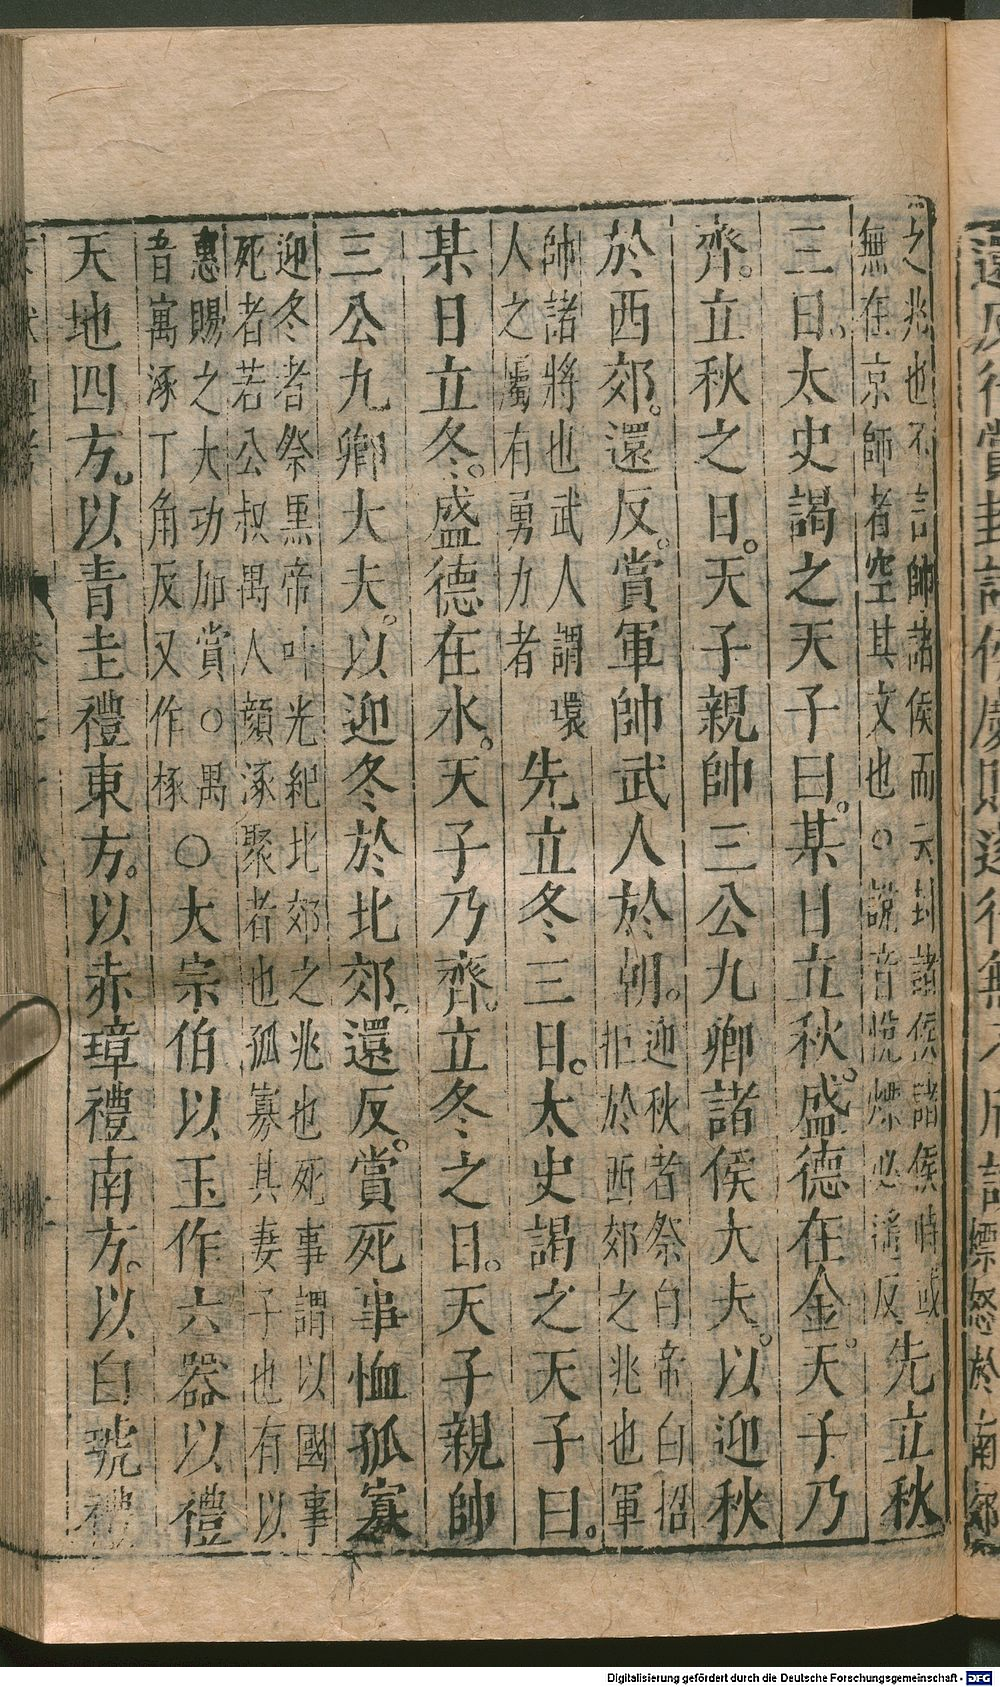 之兆也不言帥諸侯而云封諸侯諸侯時或
無在京師者空其文也○說音悅熛必遙反
先立秋
三日。太史謁之天子曰。某日立秋。盛德在金。天子乃
齊。立秋之日。天子親帥三公九卿諸侯大夫。以迎秋
於西郊。還反。賞軍帥武人於朝。
迎秋者祭白帝白招
拒於西郊之兆也軍
帥諸將也武人謂環
人之屬有勇力者
先立冬三日。太史謁之天子曰。
某日立冬。盛德在水。天子乃齊。立冬之日。天子親帥
三公九卿大夫。以迎冬於北郊。還反。賞死事恤孤寡
迎冬者祭黑帝叶光紀北郊之兆也死事謂以國事
死者若公叔禺人顏涿聚者也孤寡其妻子也有以
惠賜之大功加賞○禺
音寓涿丁角反又作椓
○大宗伯以玉作六器以禮
天地四方。以青圭禮東方。以赤璋禮南方。以白琥禮
Digitalisierung gefördert durch die Deutsche Forschungsgemeinschaft - DFG